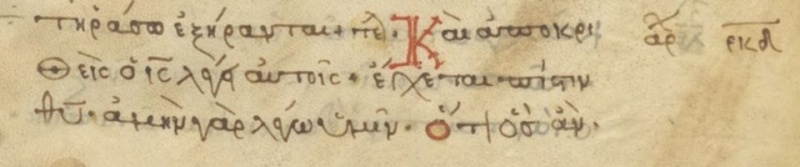 τηράσω ἐξήρανται· τε̅λ· Καὶ ἀποκρι ἀρχ ρκδ
θεὶς ὁ ι̅ς λέγει αὐτοῖς· ἔχεται πίστιν
θ̅υ· ἀμὴν γὰρ λέγω ὑμῖν· ὅτι ὃς ἂν·